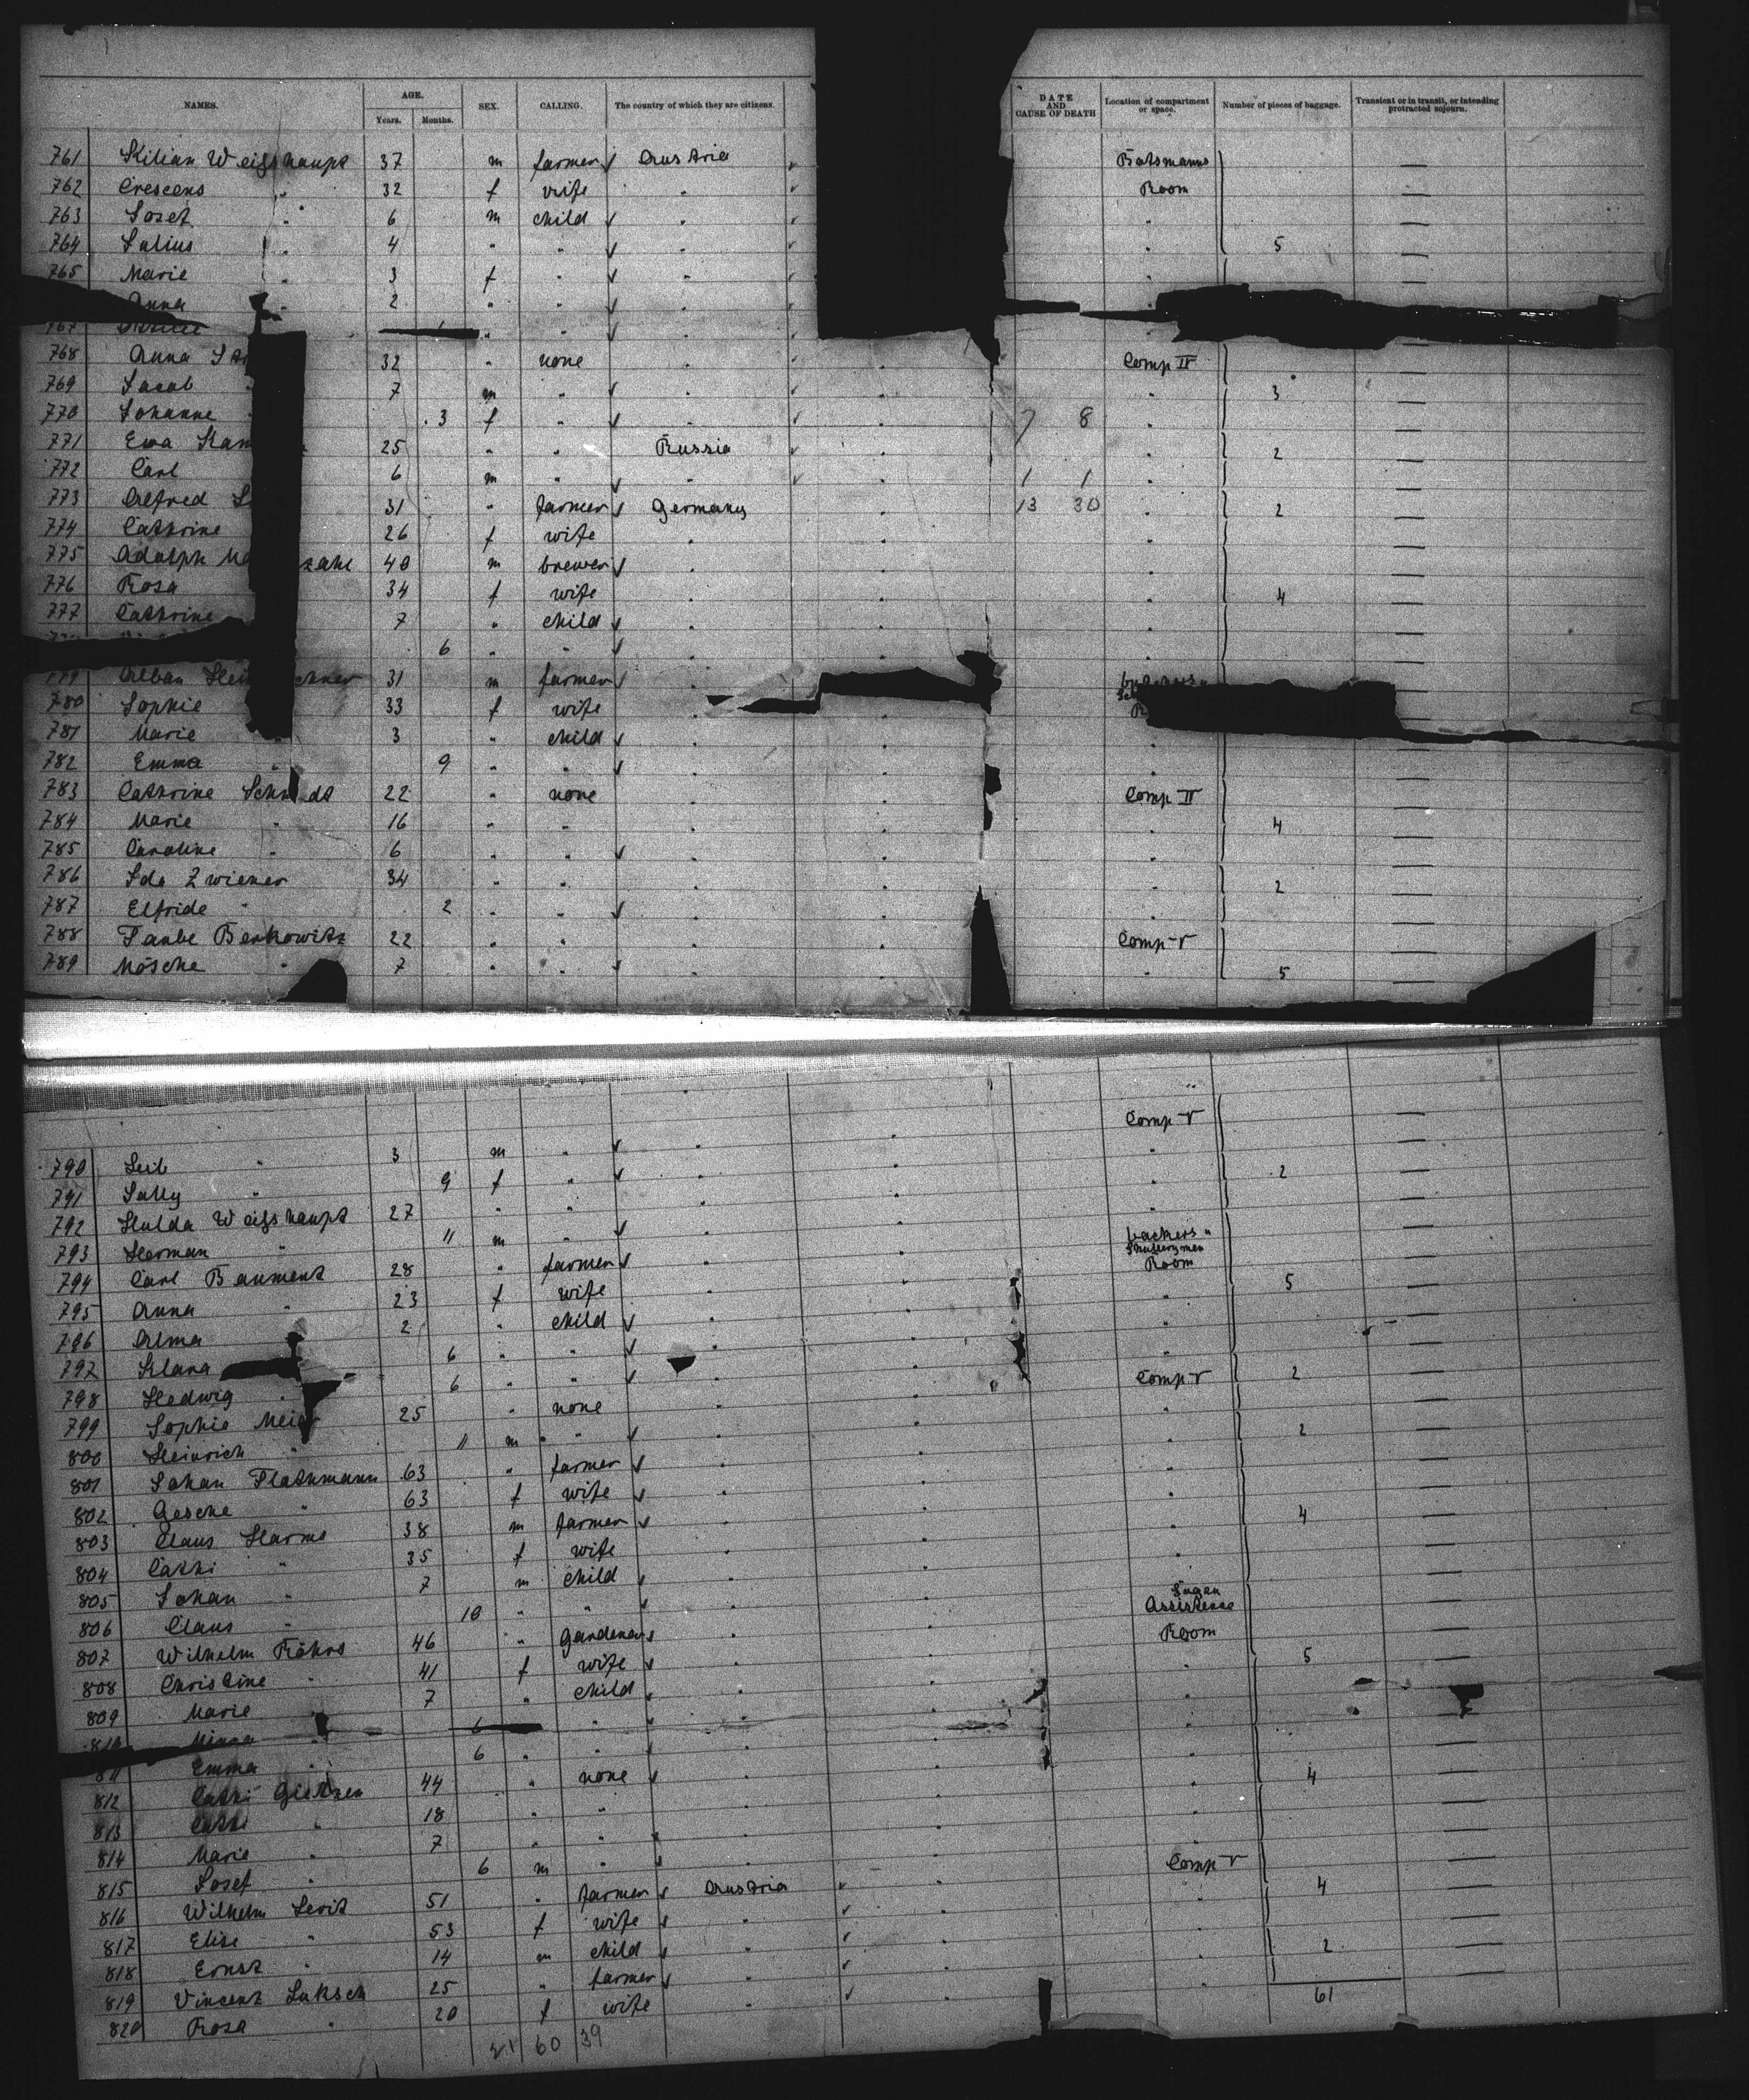 NAMES. AGE. SEX. CALLING. The country of which they are citizens. DATE AND CAUSE OF DEATH Location of compartment or space. Number of pieces of baggage. Transient or in transit, or intending protracted sojourn.
Years. Months.
761 Kilian Weisshaupt 37 m farmer Austria Botsmanns
762 Crescens " 32 f wife " Room
763 Josef " 6 m child " "
764 Julius " 4 " " " " 5
765 Marie " 3 f " " "
Anna " 2 " " " "
767 " " "
768 Anna 32 " none " Comp II
769 Jacob 7 m " " " 3
770 Johanne 3 f " " 7 8 "
771 Ewa 25 " " Russia " 2
772 Carl 6 m " " 1 1 "
773 Alfred 31 " farmer Germany 13 30 " 2
774 Cathrine 26 f wife " "
775 Adolph 40 m brewer " "
776 Rosa 34 f wife " " 4
777 Cathrine 7 " child " "
6 " " " "
779 Alban 31 m farmer
780 Sophie 33 f wife "
781 Marie 3 " child " "
782 Emma " 9 " " " "
783 Cathrine Schmidt 22 " none " Comp II
784 Marie " 16 " " " " 4
785 Caroline " 6 " " " "
786 Ida Zwiener 34 " " " " 2
787 Elfride " 2 " " " "
788 Taube Berkowitz 22 " " " Comp V
789 Mosche " 7 " " " " 5
Comp V
790 Leib " 3 m " " "
791 Sally " 9 f " " " 2
792 Hulda Weisshaupt 27 " " " "
793 Herman " 11 m " " backers "
794 Carl Baument 28 " farmer " Room
795 Anna " 23 f wife " " 5
796 Alma " 2 " child " "
797 Klara 6 " " " "
798 Hedwig " 6 " " " Comp V 2
799 Sophie Meier 25 " none " "
800 Heinrich " 11 m " " " 2
801 Johan Flathmann 63 " farmer " "
802 Gesche " 63 f wife " "
803 Claus Harms 38 m farmer " " 4
804 Cathi " 35 f wife " "
805 Johan " 7 m child "
806 Claus " 10 " " " Assistence
807 Wilhelm Röhrs 46 " gardener " Room
808 Christine " 41 f wife " " 5
809 Marie 7 " child " "
810 Minna " 6 " " "
811 Emma " 6 " " " "
812 Cathi 44 " none " " 4
813 Cathi " 18 " " "
814 Marie " 7 " " "
815 Josef " 6 m " " Comp V
816 Wilhelm 51 " farmer Austria " 4
817 Elise " 53 f wife "
818 Ernst " 14 m child " " 2
819 Vincenz Luksch 25 " farmer " "
820 Rosa " 20 f wife " 61
21 60 39